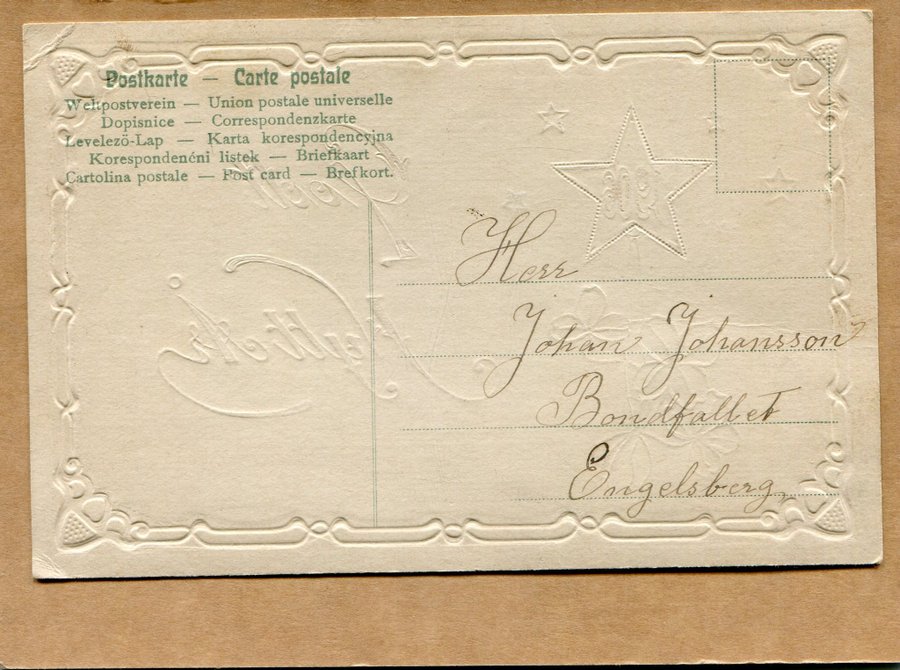 Postkarte — Carte postale
Weltpostverein — Union postale universelle
Dopisnice — Correspondenzkarte
Levelező-Lap — Karta korespondencyjna
Korespondenéni listek — Briefkaart
Cartolina postale — Post card — Brefkort.
Herr
Johan Johansson
Bondfallet
Engelsberg,